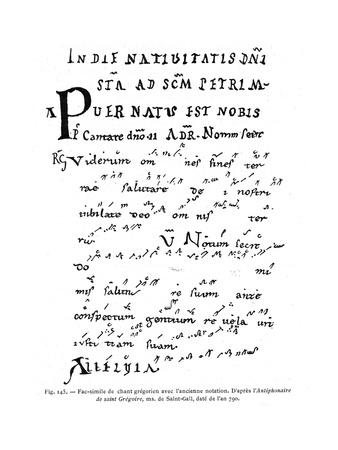 IN DIE NATIVITATIS DNI
STA AD SCM PETRUM
A PUER NATUS EST NOBIS
P Cantate dno II ADR. Notum fecit
RG Viderunt om nes fines ter
rae salutare de i nostri
iubilate deo om nis ter
ra V Notum fecit
do mi
nus saluta re suum ante
conspectum gentium re uela uit
iusti tiam suam
Alleluia
Fig. 145. — Fac-simile de chant grégorien avec l'ancienne notation. D'après l'Antiphonaire
de saint Grégoire, ms. de Saint-Gall, daté de l'an 790.